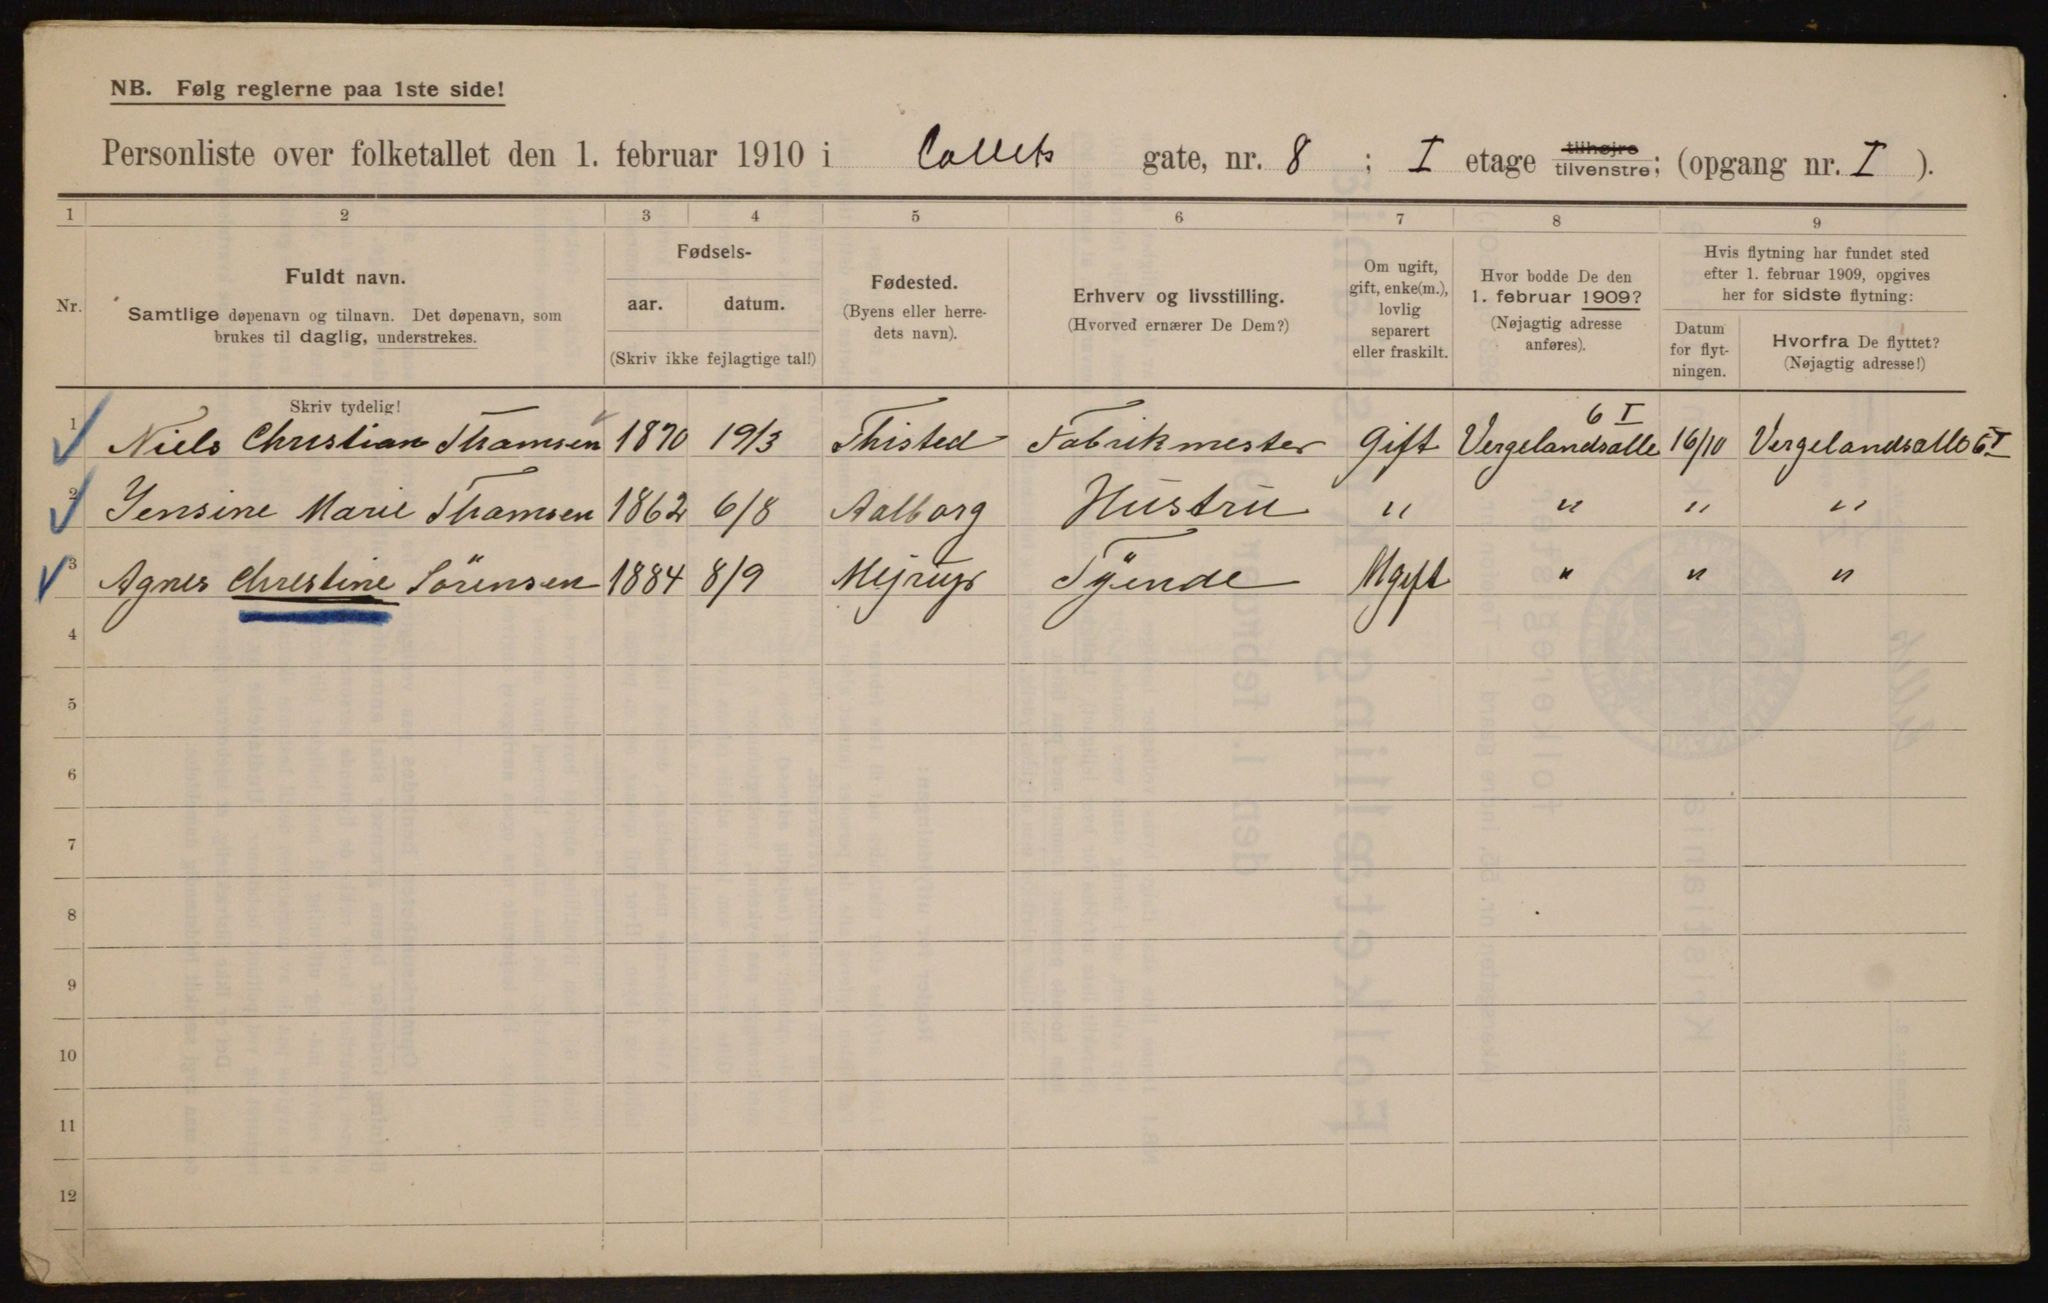 NB. Følg reglerne paa 1ste side!
Personliste over folketallet den 1. februar 1910 i Collets gate, nr. 8 ; I etage tilhøjre tilvenstre; (opgang nr. I ).
1 2 3 4 5 6 7 8 9
Nr.
Fuldt navn.
Samtlige døpenavn og tilnavn. Det døpenavn, som
brukes til daglig, understrekes.
Skriv tydelig!
Fødsels-
aar. datum.
(Skriv ikke fejlagtige tal!)
Fødested.
(Byens eller herre-
dets navn).
Erhverv og livsstilling.
(Hvorved ernærer De Dem?)
Om ugift,
gift, enke(m.),
lovlig
separert
eller fraskilt.
Hvor bodde De den
1. februar 1909?
(Nøjagtig adresse
anføres).
Hvis flytning har fundet sted
efter 1. februar 1909, opgives
her for sidste flytning:
Datum
for flyt-
ningen.
Hvorfra De flyttet?
(Nøjagtig adresse!)
6 I
1 Niels Christian Thamsen 1870 19/3 Thisted Fabrikmester Gift Vergelandsalle 16/10 Vergelandsalle 6 I
2 Jensine Marie Thamsen 1862 6/8 Aalborg Hustru " " " "
3 Agnes Christine Sörensen 1884 8/9 Tÿende Ugift " " "
4
5
6
7
8
9
10
11
12